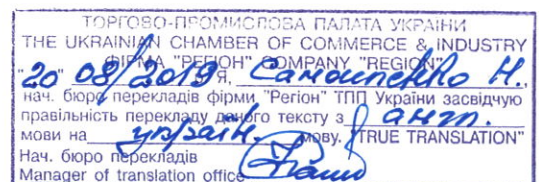 ТОРГОВО-ПРОМИСЛОВА ПАЛАТА УКРАЇНИ
THE UKRAINIAN CHAMBER OF COMMERCE & INDUSTRY
ФІРМА "РЕГІОН" COMPANY "REGION"
"20" 08/2019 Я, Самоипенко Н.,
нач. бюро перекладів фірми "Регіон" ТПП України засвідчую
правільність перекладу даного тексту з англ.
мови на україн. мову. "TRUE TRANSLATION"
Нач. бюро перекладів
Manager of translation office